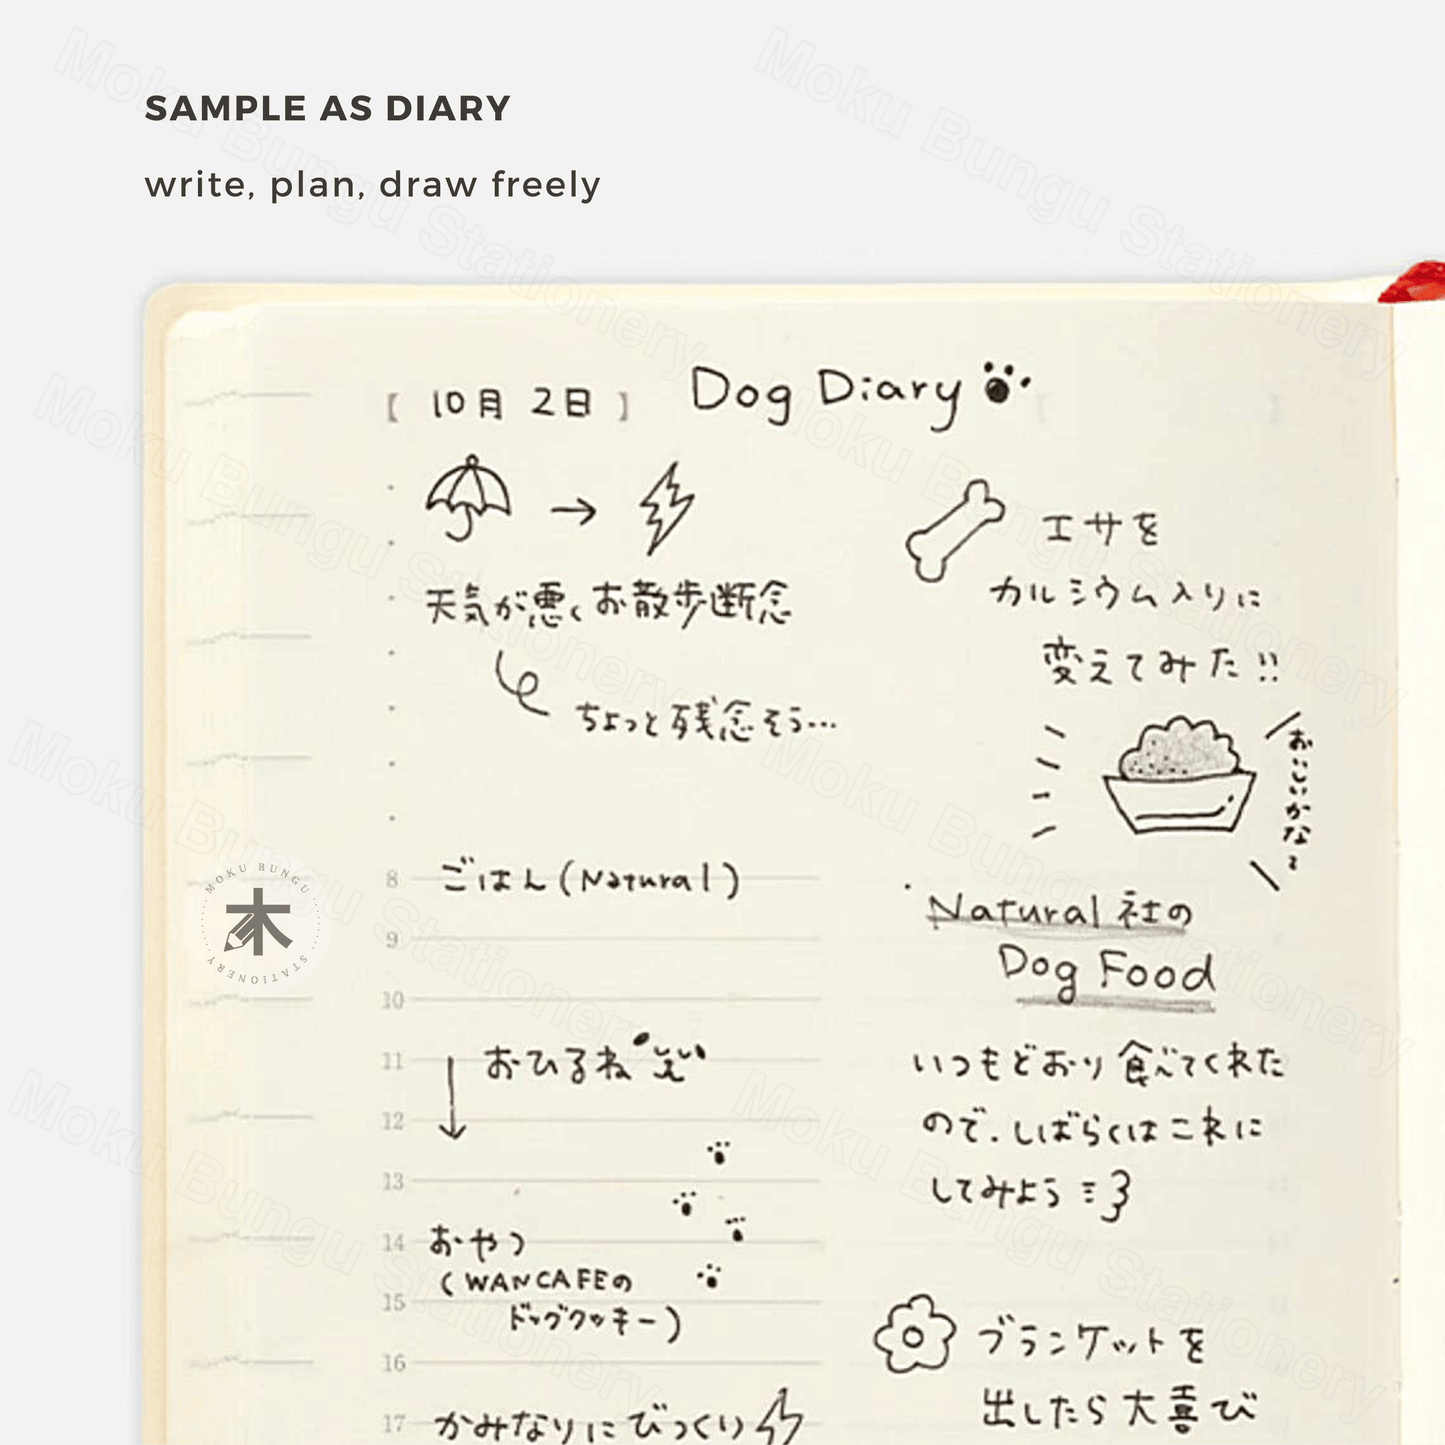 SAMPLE AS DIARY
write, plan, draw freely
[ 10月 2日 ] Dog Diary
天気が悪くお散歩断念
ちょっと残念そう…
8 ごはん(Natural)
9
10
11 おひるね
12
13
14 おやつ
(WANCAFEの
15 ドッグクッキー)
16
17 かみなりにびっくり
エサを
カルシウム入りに
変えてみた!!
おいしいかな?
Natural社の
Dog Food
いつもどおり食べてくれた
ので、しばらくはこれに
してみよう
ブランケットを
出したら大喜び
MOKU BUNGU
木
STATIONERY
Moku Bungu Stationery